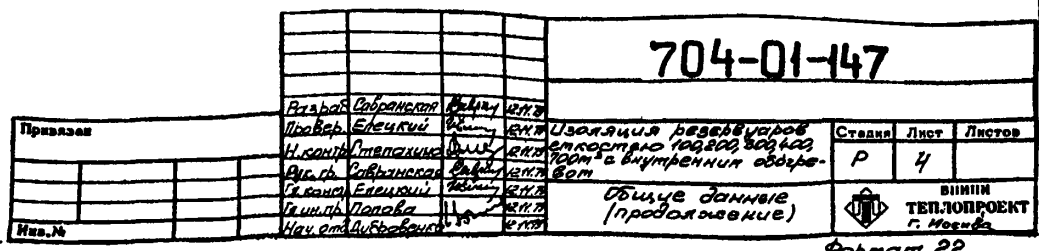 704-01-147
Привязан
Инв.№
Разраб Савранская 12.11.79
Провер. Елецкий 12.11.79
Н.контр Степахина 12.11.79
Рук.гр. Савранская 12.11.79
Гл.конст Елецкий 12.11.79
Гл.ин.пр. Попова 12.11.79
Нач.отд Дубравенко 12.11.79
Изоляция резервуаров
емкостью 100,200,300,400,
700м³ с внутренним обогре-
вом
Общие данные
(продолжение)
Стадия Лист Листов
Р 4
ВНИПИ
ТЕПЛОПРОЕКТ
г. Москва
Формат 22